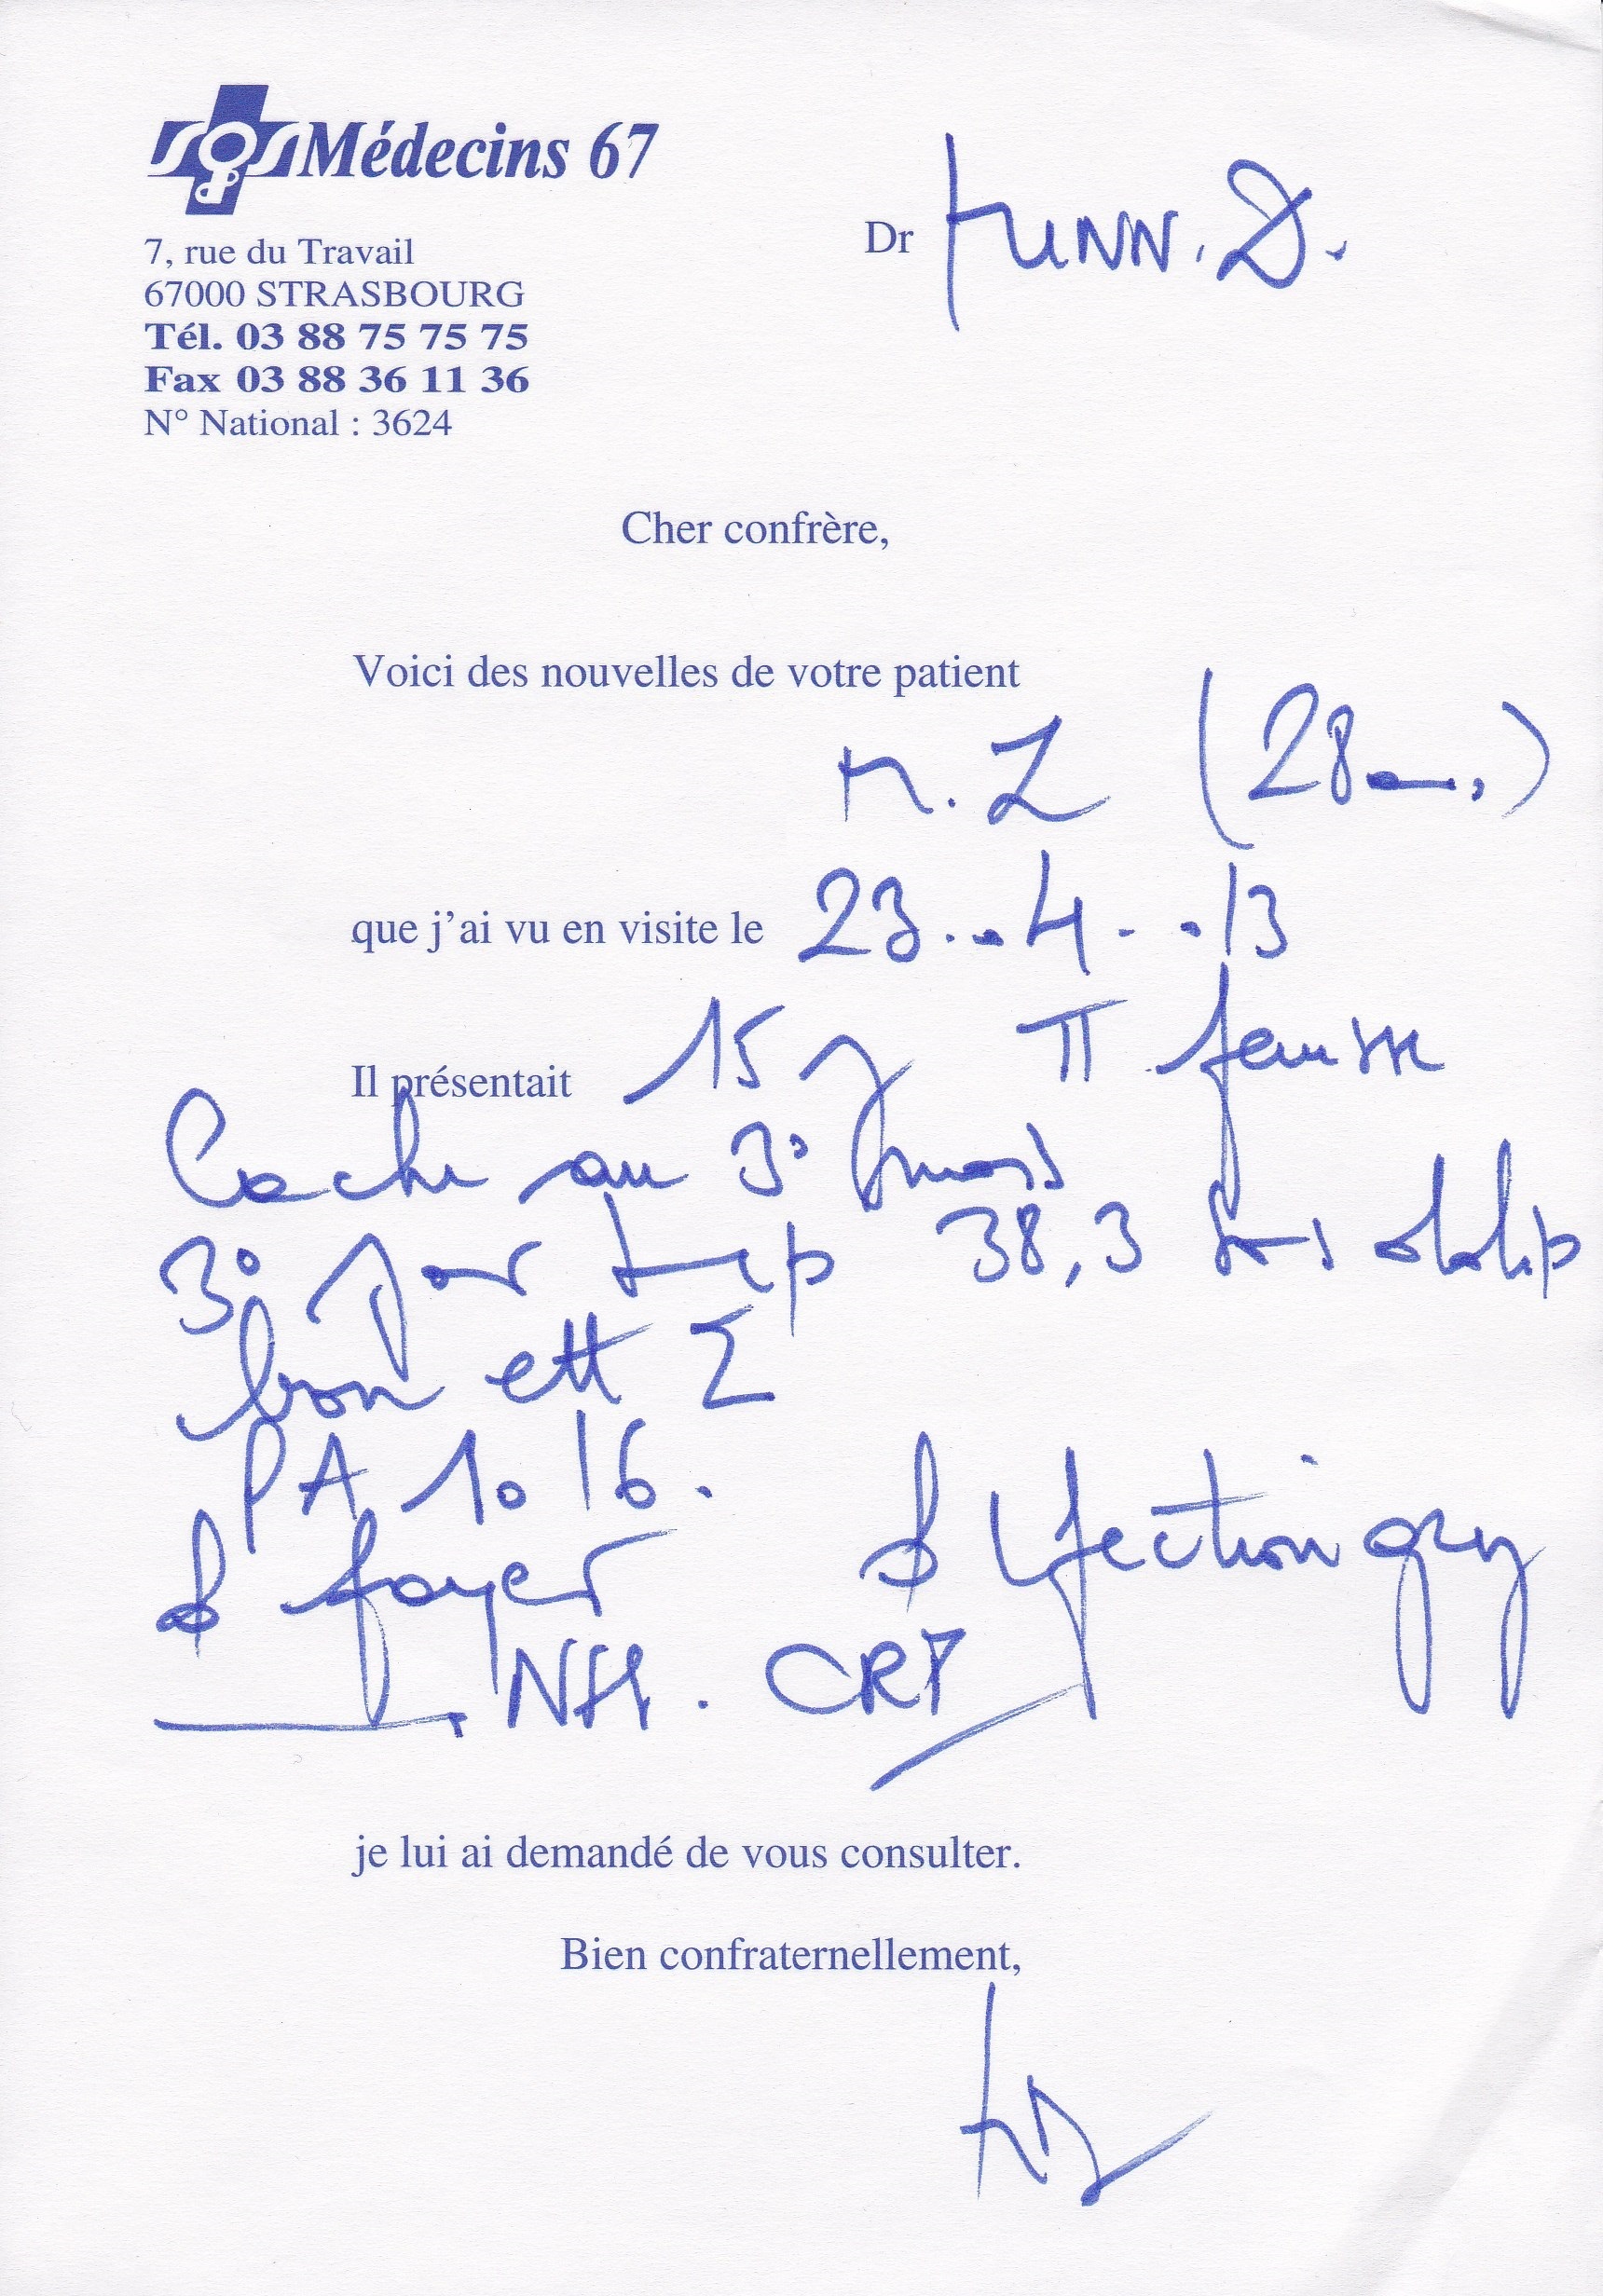 SOS Médecins 67
7, rue du Travail
67000 STRASBOURG
Tél. 03 88 75 75 75
Fax 03 88 36 11 36
N° National : 3624
Dr KUNN. D.
Cher confrère,
Voici des nouvelles de votre patient
M. Z (28 ans)
que j'ai vu en visite le 23..4-.13
Il présentait 15 j TT fausse
Couche au 3° mois
3° jour temp 38,3
bon ett Σ
PA 10 16.
foyer
NFS. CRP
je lui ai demandé de vous consulter.
Bien confraternellement,